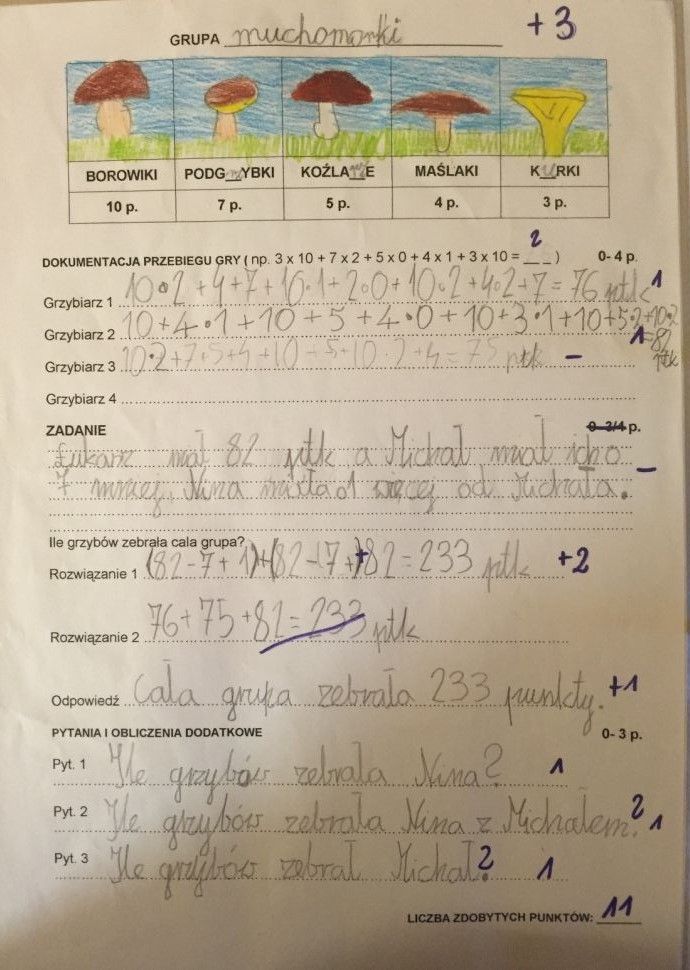 GRUPA muchomorki +3
BOROWIKI PODG__YBKI KOŹLA__E MAŚLAKI K__RKI
10 p. 7 p. 5 p. 4 p. 3 p.
2
DOKUMENTACJA PRZEBIEGU GRY ( np. 3 x 10 + 7 x 2 + 5 x 0 + 4 x 1 + 3 x 10 = _ _ ) 0- 4 p.
Grzybiarz 1 10·2 + 4 + 7 + 10·1 + 2·0 + 10·2 + 4·2 + 7 = 76 ptk 1
Grzybiarz 2 10 + 4·1 + 10 + 5 + 4·0 + 10 + 3·1 + 10 + 5·2 + 10·2 = 82 ptk 1
Grzybiarz 3 10·2 + 7·5 + 4 + 10 + 5 + 10·2 + 4 = 75 ptk –
Grzybiarz 4
ZADANIE 0-3/4 p.
Łukasz miał 82 ptk a Michał miał ich o –
7 mniej. Nina miała o 1 więcej od Michała.
Ile grzybów zebrała cala grupa?
Rozwiązanie 1 (82-7+1)+(82-7)+82=233 ptk +2
Rozwiązanie 2 76+75+82=233 ptk
Odpowiedź Cała grupa zebrała 233 punkty. +1
PYTANIA I OBLICZENIA DODATKOWE 0- 3 p.
Pyt. 1 Ile grzybów zebrała Nina? 1
Pyt. 2 Ile grzybów zebrała Nina z Michałem? 1
Pyt. 3 Ile grzybów zebrał Michał? 1
LICZBA ZDOBYTYCH PUNKTÓW: 11